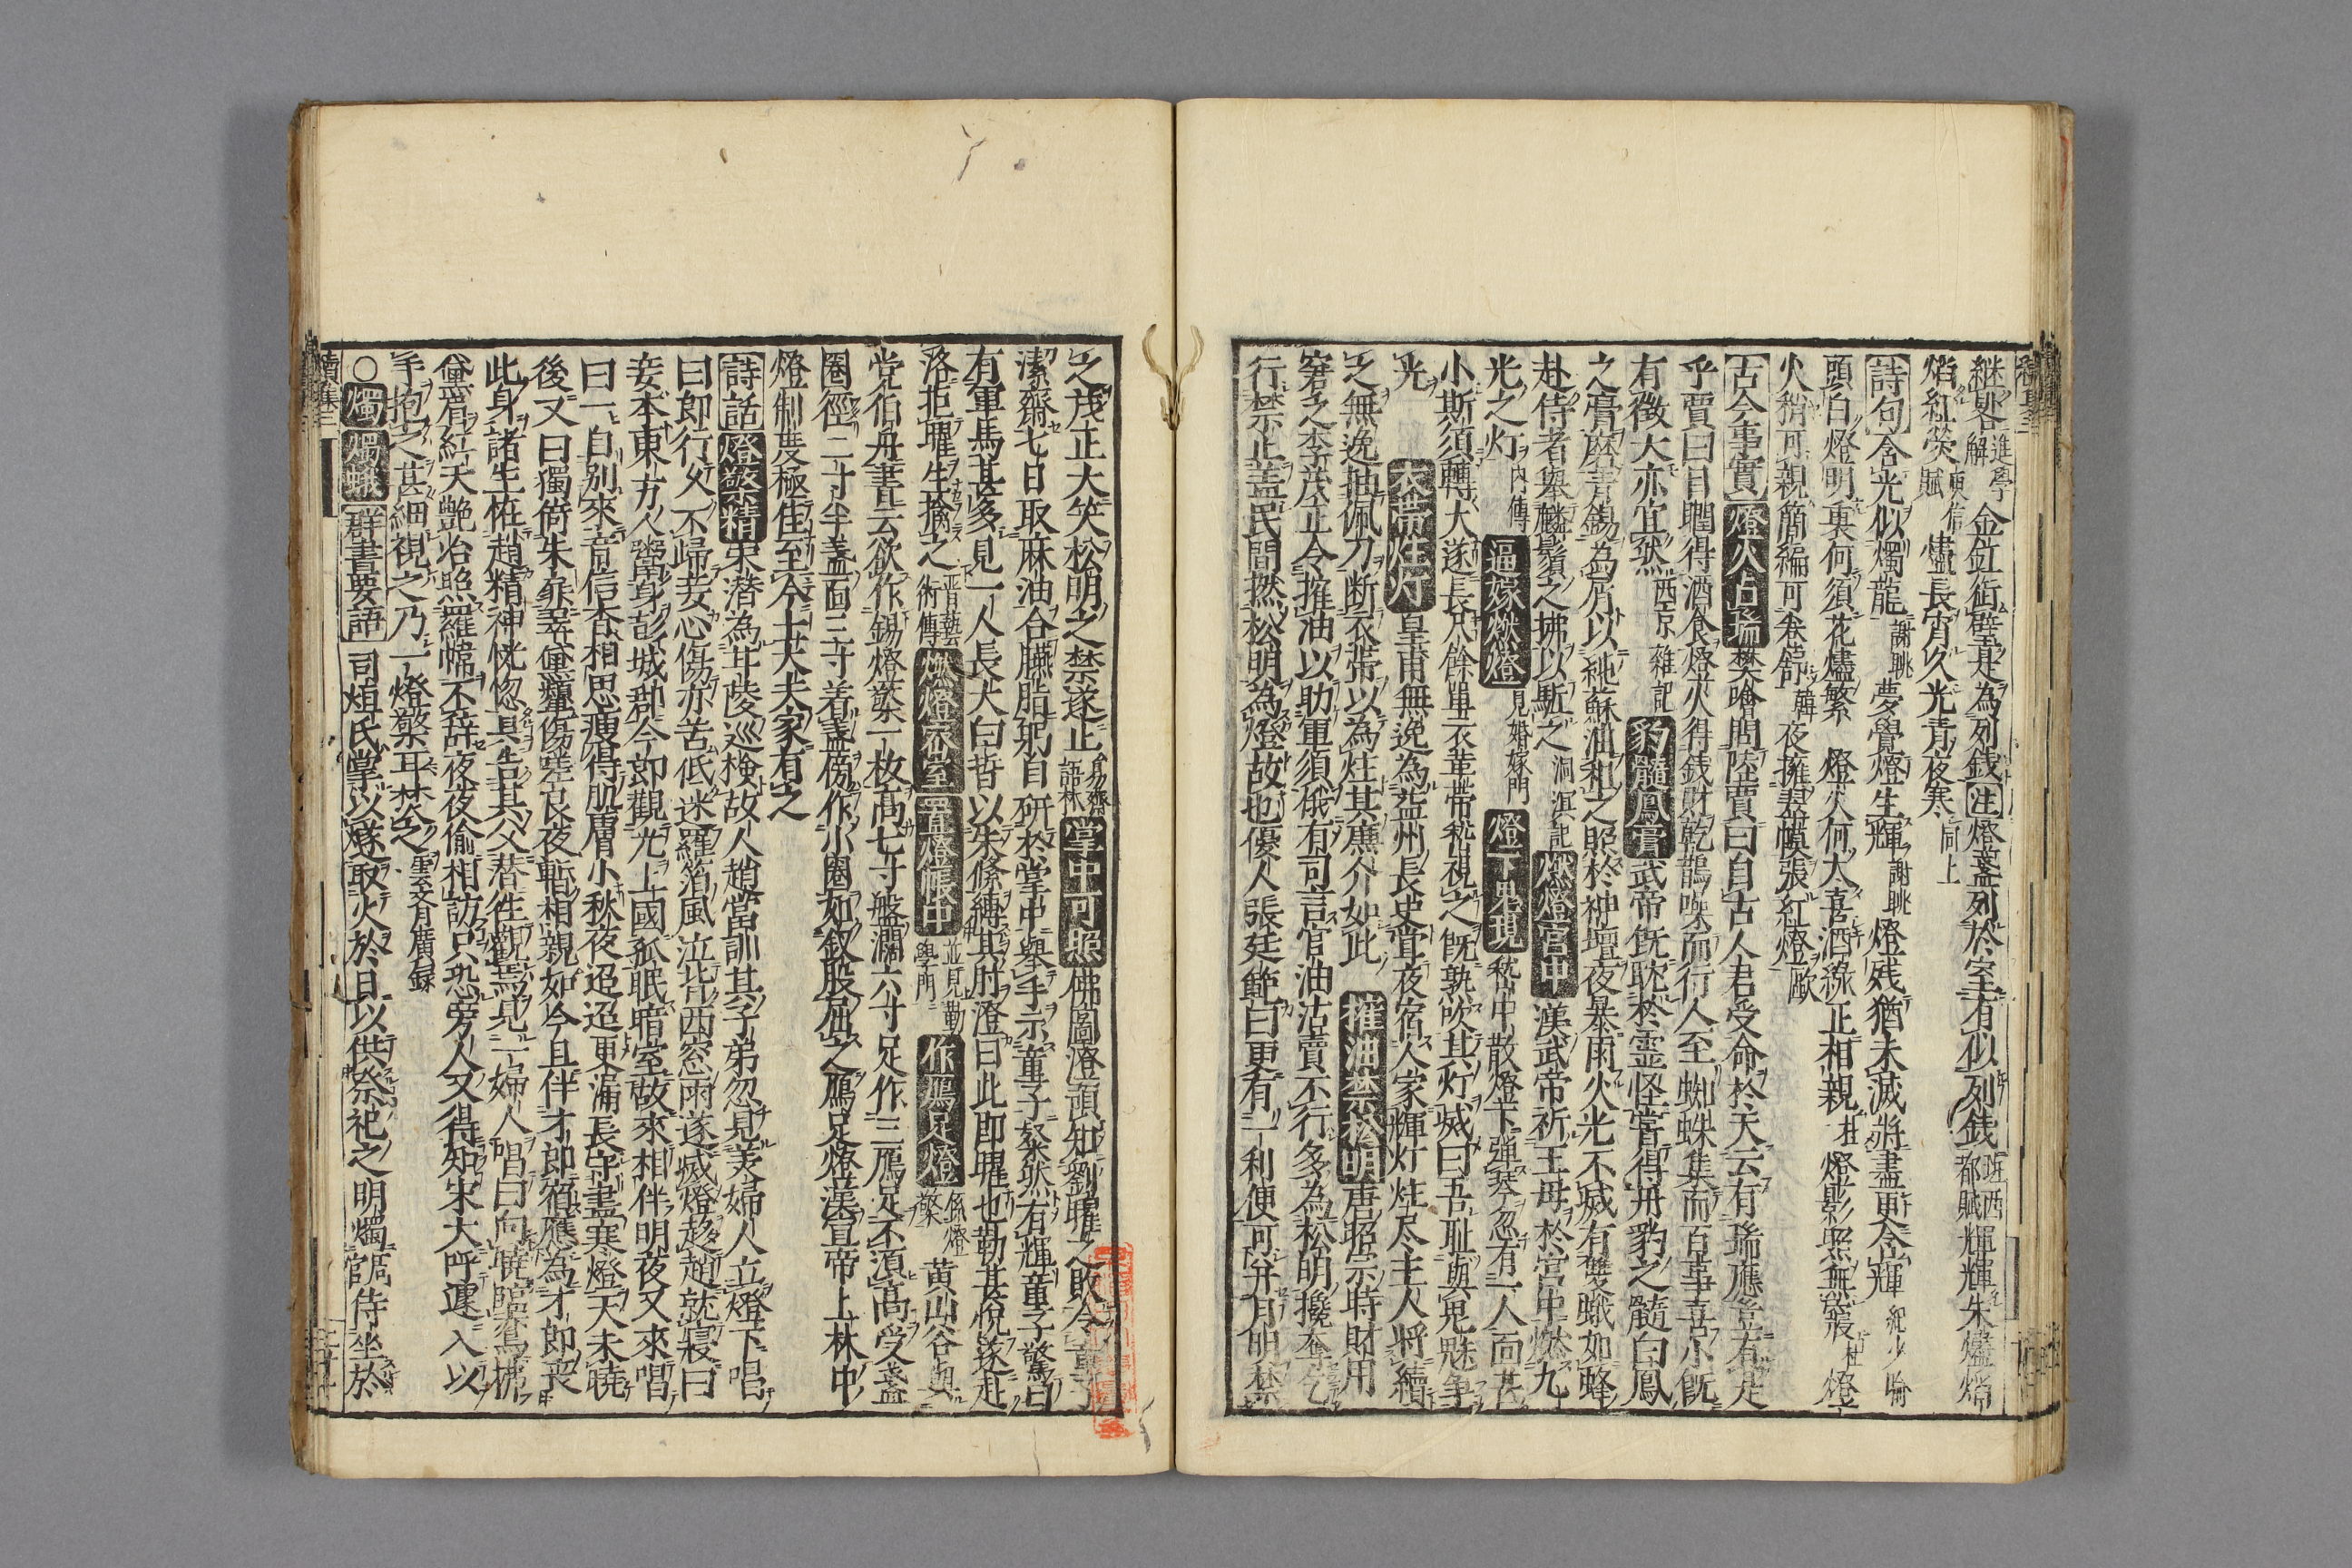 継晷進學解 金釭銜璧是為列銭注燈盞列於室有似列銭班西都賦輝輝朱燼焰
焰紅榮庾信賦 燼長宵久光青夜寒同上
詩句含光似燭龍謝眺夢覺燈生輝謝眺 燈残猶未滅將盡更令輝紀少瑜
頭白燈明裏何須花燼繁 燈火何太喜酒綠正相親杜燈影照無寢杜 燈
火稍可親簡編可卷舒韓夜擁翠幙張紅燈歐
古今事實燈火占瑞樊噲問陸賈曰自古人君受命於天云有瑞應豈有是
乎賈曰目瞤得酒食燈火得銭財乾鵲噪而行人至蜘蛛集而百事喜小既
有徴大亦宜然西京雑記豹髓鳳膏武帝既耽於霊怪甞得丹豹之髓白鳳
之膏磨青錫為屑以純蘇油和之照於神壇夜暴雨火光不滅有雙蛾如蜂
赴侍者舉麟鬚之拂以駈之洞㝠記燃燈宮中漢武帝祈王母於宮中燃九
光之灯内傳逼嫁燃燈見婚嫁門燈下鬼現嵆中散燈下弾琴忽有一人面甚
小斯須轉大遂長尺餘單衣革帯嵆視之既熟吹其灯滅曰吾耻與鬼魅争
光 衣帯炷灯皇甫無逸為益州長史甞夜宿人家輝灯炷尽主人將續
之無逸抽佩刀断衣帯以為炷其廉介如此 搉油禁松明唐昭宗時財用
窘乏李茂正令搉油以助軍須俄有司言官油沽賣不行多為松明攙奪乞
行禁止盖民間燃松明為燈故也優人張廷範曰更有一利便可并月明禁
之茂正大笑松明之禁遂止易齋語林掌中可照佛圖澄預知劉曜之敗令童子
潔齋七日取麻油合臙脂躬自研於掌中舉手示童子粲然有輝童子驚曰
有軍馬甚多見一人長大白晳以朱絛縛其肘澄曰此即曜也勒甚悅遂赴
洛拒曜生擒之晋藝術傳燃燈密室置燈帳中並見勤學門作鴈足燈係燈檠黄山谷與
党伯舟書云欲作錫燈檠一枚高七寸盤濶六寸足作三鴈足不須高受盞
圏徑二寸半盖面三寸着盞傍作小圏如釵股屈之鴈足燈漢宣帝上林中
燈制度極佳至今士大夫家有之
詩話燈檠精宋潜為甘陵巡検故人趙當訓其子弟忽見美婦人立燈下唱
曰郎行久不歸妾心傷亦苦低迷羅箔風泣背西窓雨遂滅燈趍趙就寢曰
妾本東方人鬻身彭城郡今郎觀光上國孤眠暗室故來相伴明夜又來唱
曰一自别來音信杳相思瘦得肌膚小秋夜迢迢更漏長守盡寒燈天未曉
後又曰獨倚朱扉翠黛顰傷嗟良夜暫相親如今且伴才郎宿應為才郎喪
此身諸生恠趙精神恍惚具告其父替徃觀焉見一婦人唱曰向曉臨鸞拂
黛眉紅夭艶冶照羅幃不辞夜夜偷相訪只恐旁人又得知宋大呼遽入以
手抱之甚細視之乃一燈檠耳焚之雲斎廣録
○燭 燭蛾 群書要語 司烜氏掌以燧取火於日以供祭祀之明燭周官侍坐於